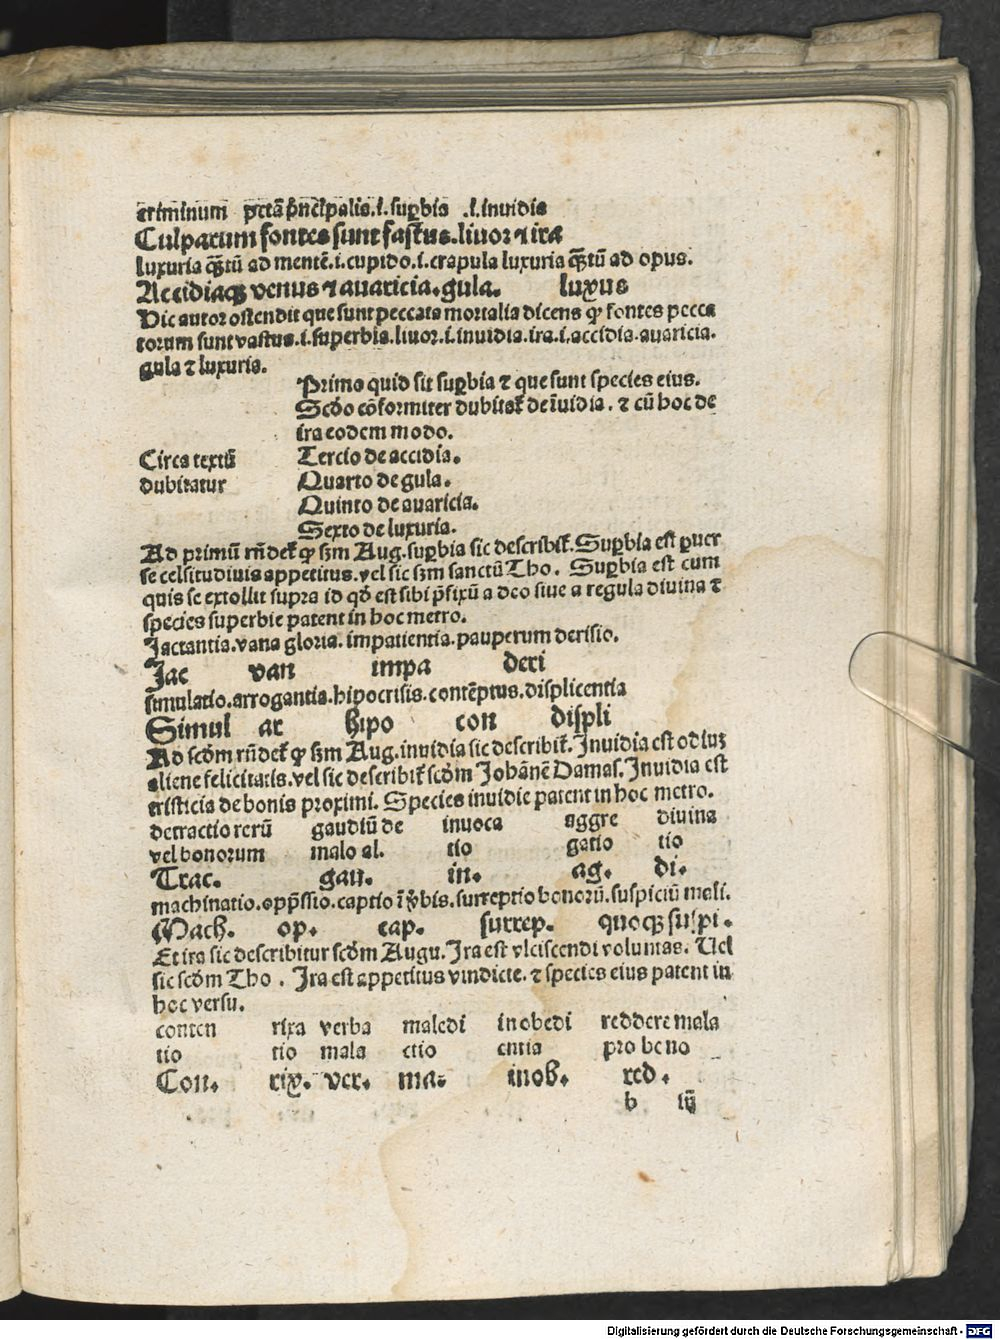 criminum pctā pͥncipalis .i. supbis .i. inuidis
Culparum fontes sunt fastus. liuor ⁊ ira
luxuria qͣꝫtū ad mentē .i. cupido .i. crapula luxuria qͣꝫtū ad opus.
Accidiaqꝫ venus ⁊ auaricia. gula. luxus
Hic autor ostendit que sunt peccata mortalia dicens ꝙ fontes pecca
torum sunt vastus .i. superbia. liuor .i. inuidia. ira .i. accidia. auaricia.
gula ⁊ luxuria.
Primo quid sit suꝑbia ⁊ que sunt species eius.
Scďo cōformiter dubitat᷑ de īuidia. ⁊ cū hoc de
ira eodem modo.
Circa textū
dubitatur
Tercio de accidia.
Quarto de gula.
Quinto de auaricia.
Sexto de luxuria.
Ad primū rn̄det᷑ ꝙ sꝫm Aug. suꝑbia sic describit᷑. Suꝑbia est ꝑuer
se celsitudiuis appetitus. vel sic sꝫm sanctū Tho. Suꝑbia est cum
quis se extollit supra id qď est sibi p̄fixū a deo siue a regula diuina ⁊
species superbie patent in hoc metro.
Jactantia. vana gloria. impatientia. pauperum derisio.
Jac van impa deri
simulatio. arrogantia. hipocrisis. contēptus. displicentia
Simul ar hipo con displi
Ad scďm rn̄det᷑ ꝙ sꝫm Aug. inuidia sic describit᷑. Inuidia est odiuꝫ
aliene felicitatis. vel sic describit᷑ scďm Johānē Damas. Inuidia est
tristicia de bonis proximi. Species inuidie patent in hoc metro.
detractio rerū gaudiū de inuoca aggre diuina
vel bonorum malo al. tio gatio tio
Trac. gau. in. ag. di.
machinatio. opp̄ssio. captio ī ỽbis. surreptio bonorū. suspiciū mali.
Mach. op. cap. surrep. quoqꝫ suspi.
Et ira sic describitur scďm Augu. Ira est vlciscendi voluntas. Uel
sic scďm Tho. Ira est appetitus vindicte. ⁊ species eius patent in
hoc versu.
conten rixa verba maledi inobedi reddere mala
tio tio mala ctio entia pro bono
Con. rix. ver. ma. inob. red.
b iij
Digitalisierung gefördert durch die Deutsche Forschungsgemeinschaft - DFG